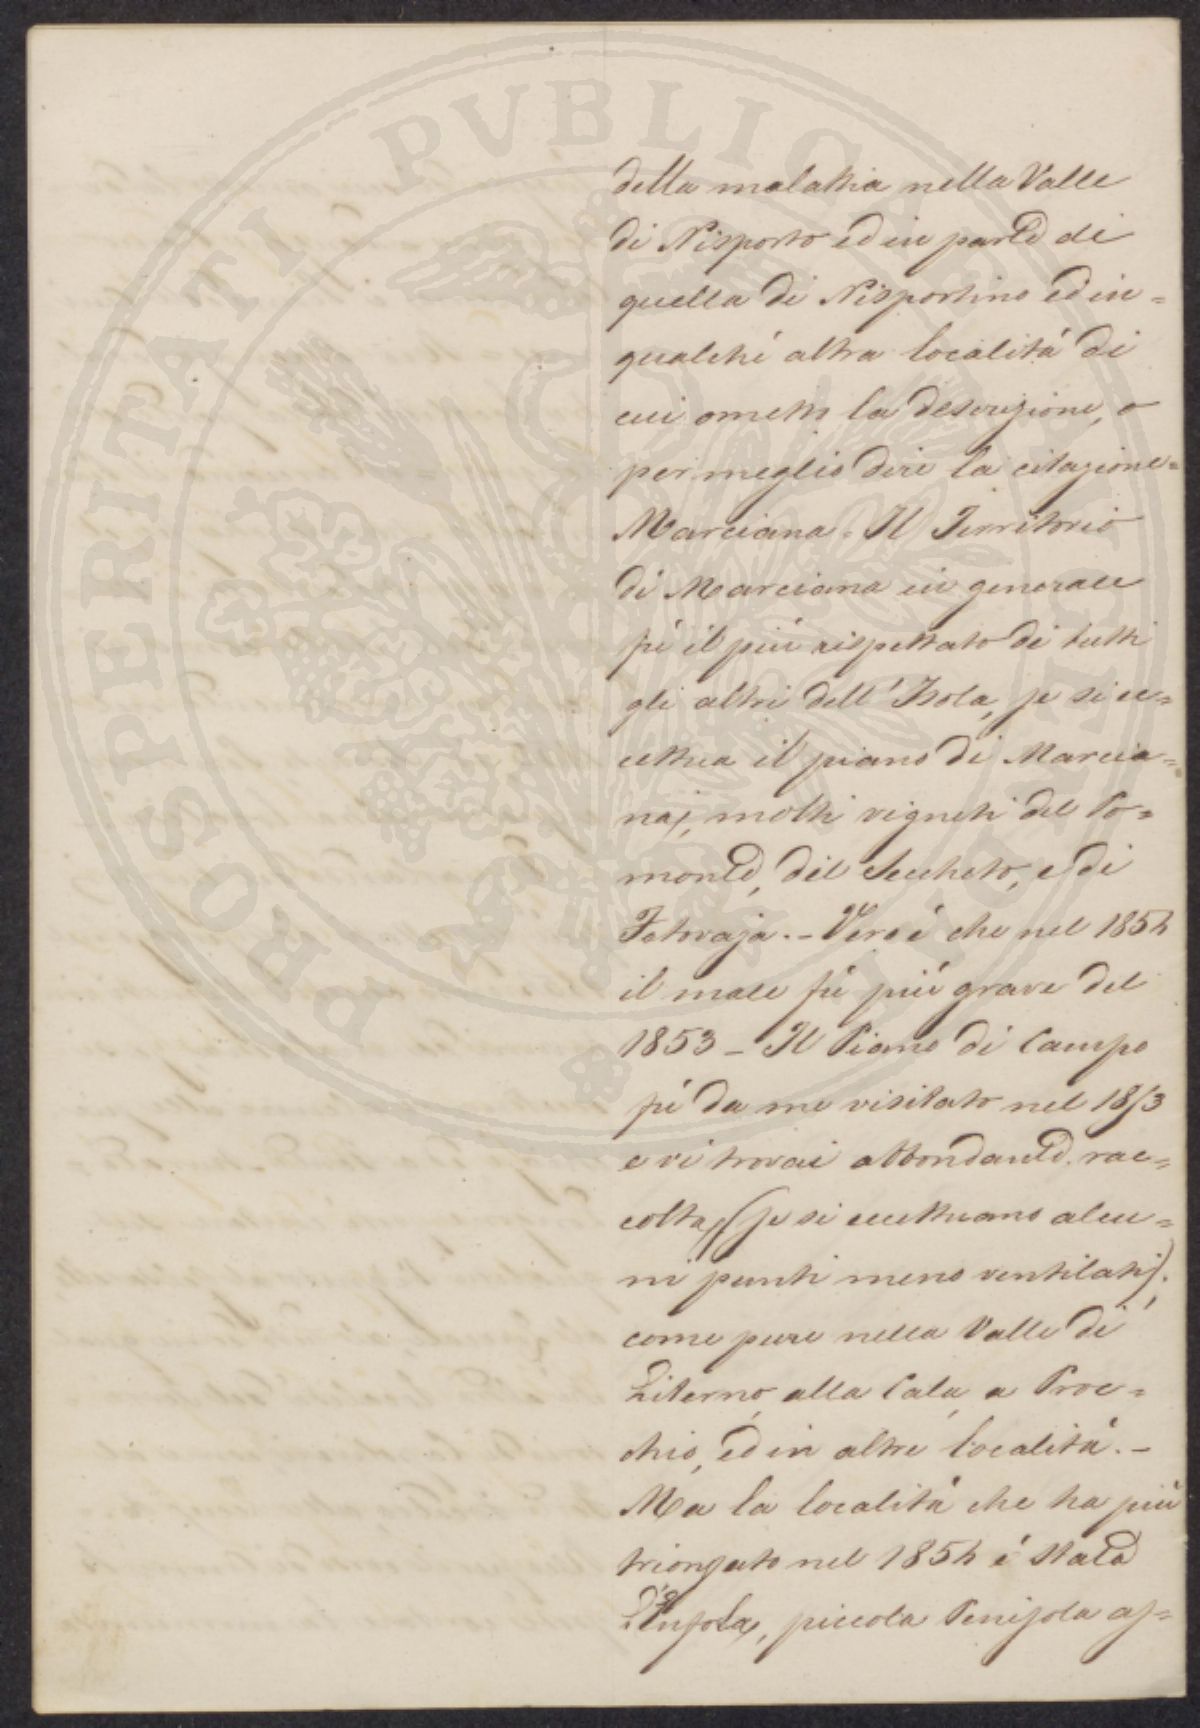 della malattia nella Valle
di Nisporto ed in parte di
quella di Nisportino ed in=
qualche altra località di
cui ometto la descrizione, o
per meglio dire la citazione=
Marciana. Il Territorio
di Marciana in generale
fù il più rispettato di tutti
gli altri dell'Isola, se si ec=
cettua il piano di Marcia=
na, molti vigneti del Po=
monte, del Seccheto, e di
Fetovaja. - Vero è che nel 1854
il male fù più grave del
1853 - Il Piano di Campo
fù da me visitato nel 1853
e vi trovai abbondante rac=
colta, (se si eccettuano alcu=
ni punti meno ventilati);
come pure nella Valle di
Literno, alla Cala, a Proc=
chio, ed in altre località. -
Ma la località che ha più
trionfato nel 1854 è stata
L'Enfola, piccola Penisola as=
PROSPERITATI PVBLICAE